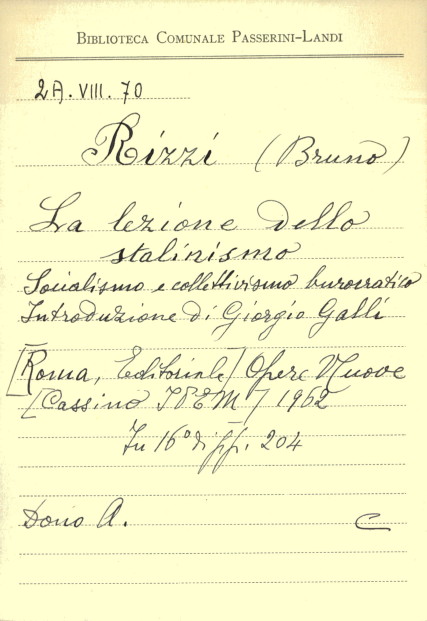 BIBLIOTECA COMUNALE PASSERINI-LANDI
2A. VIII. 70
Rizzi (Bruno)
La lezione dello
stalinismo
Socialismo e collettivismo burocratico
Introduzione di Giorgio Galli
[Roma, Editoriale] Opere Nuove
[Cassino IPEM] 1962
In 16º di pp. 204
Dono A.
C